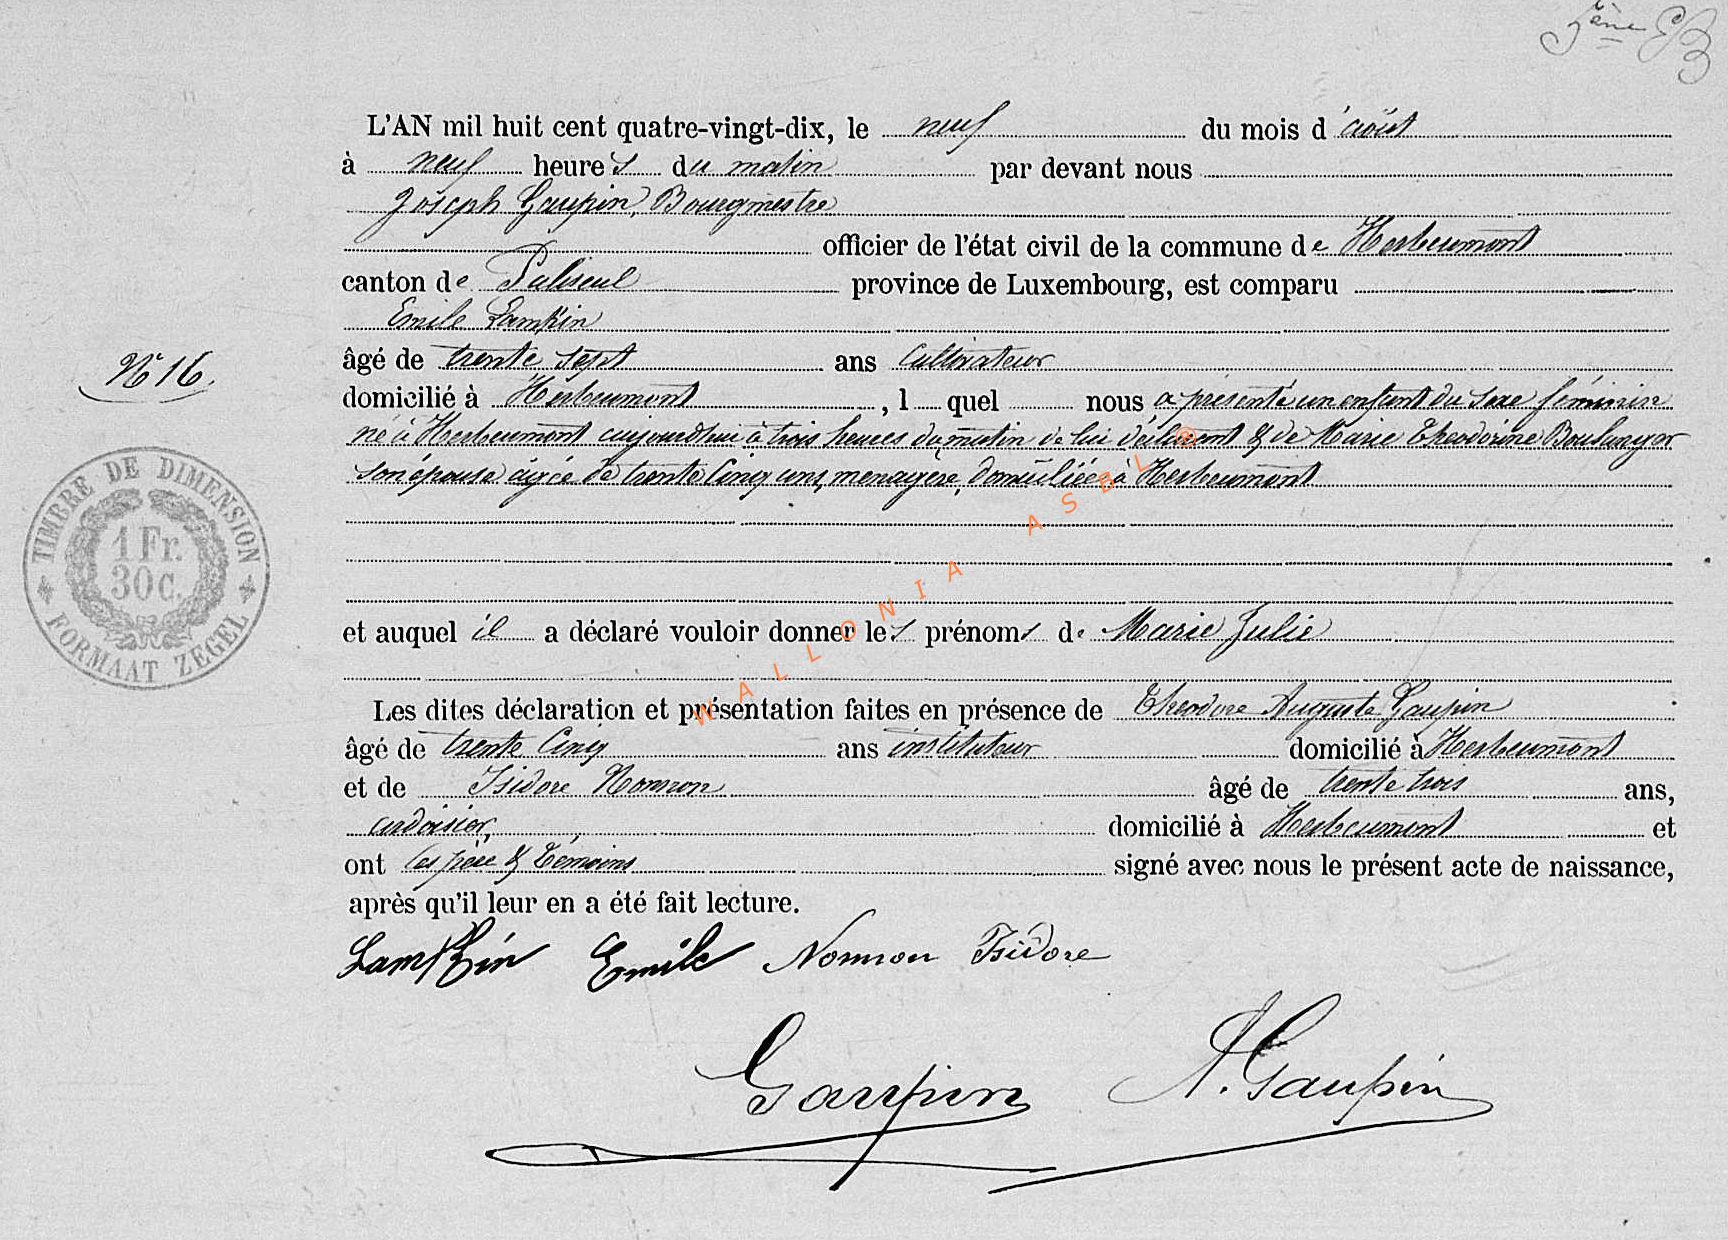 5ème
L'AN mil huit cent quatre-vingt-dix, le neuf du mois d'août
à neuf heures du matin par devant nous
Joseph Gaupin, Bourgmestre
officier de l'état civil de la commune de Herbeumont
canton de Paliseul province de Luxembourg, est comparu
Emile Lamkin
âgé de trente sept ans Cultivateur
N° 16.
domicilié à Herbeumont, l quel nous a présenté un enfant du sexe féminin
né à Herbeumont aujourd'hui à trois heures du matin de lui déclarant & de Marie Theodorine Boulanger
son épouse âgée de trente Cinq ans, menagère, domiciliée à Herbeumont
TIMBRE DE DIMENSION
1 Fr.
30 c.
FORMAAT ZEGEL
et auquel il a déclaré vouloir donner les prénoms de Marie Julie
Les dites déclaration et présentation faites en présence de Theodore Auguste Gaupin
âgé de trente Cinq ans instituteur domicilié à Herbeumont
et de Isidore Nonnon âgé de trente trois ans,
ardoisier, domicilié à Herbeumont et
ont les père & témoins signé avec nous le présent acte de naissance,
après qu'il leur en a été fait lecture.
Lamkin Emile Nonnon Isidore
Gaupin A. Gaupin
WALLONIA ASBL ®